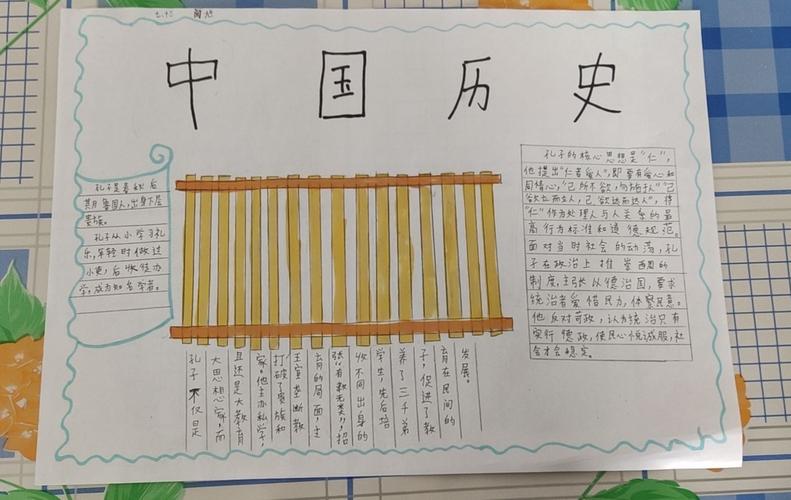 中国历史
孔子是春秋后
期鲁国人,出身下层
贵族。
孔子从小学习礼
乐,年轻时做过
小吏,后收徒办
学,成为知名学者。
孔子的核心思想是“仁”,
他提出“仁者爱人”,即要有爱心和
同情心,“己所不欲,勿施于人”“己
欲立而立人,己欲达而达人”,将
“仁”作为处理人与人关系的最
高行为标准和道德规范。
面对当时社会的动荡,孔
子在政治上推崇西周的
制度,主张以德治国,要求
统治者爱惜民力,体察民意。
他反对苛政,认为统治只有
实行德政,使民心悦诚服,社
会才会稳定。
孔子不仅是
大思想家,而
且还是大教育
家。他主办私学,
打破了贵族和
王室垄断教
育的局面,主
张“有教无类”,招
收不同出身的
学生,先后培
养了三千弟
子,促进了教
育在民间的
发展。